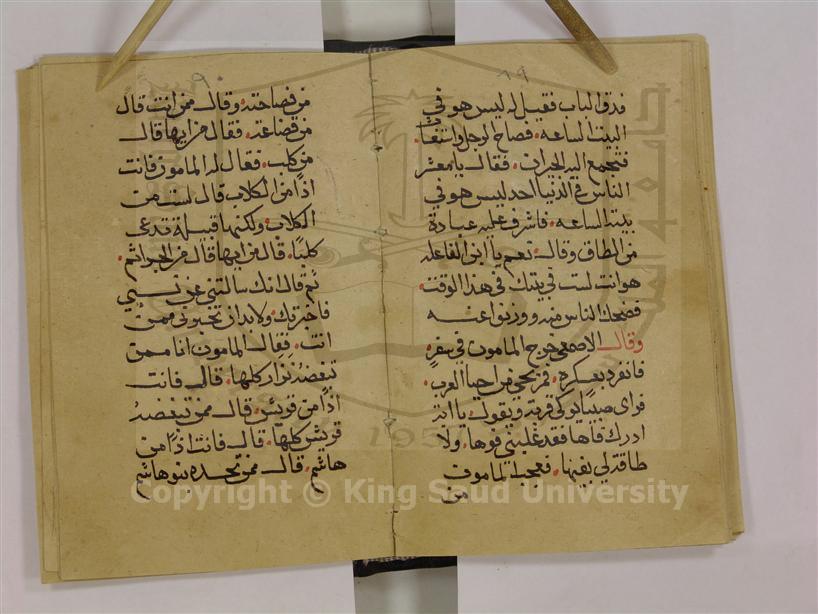 ٨٩
فدق الباب فقيل له ليس هو في
البيت الساعه فصاح الرجل واستغاث
فتجمع اليه الجيران فقال يا معشر
الناس في الدنيا احد ليس هو في
بيته الساعه فاشرف عليه عبادة
من الطاق وقال نعم يا ابن الفاعله
هو انت لست في بيتك في هذا الوقت
فضحك الناس منه
وقال الاصمعي خرج المامون في سفر
فانفرد بعسكره فمر بحي من احيا العرب
فراى صبيا يوكي قربة ويقول يا ابة
ادرك فاها فقد غلبني فوها ولا
طاقة لي بفيها فعجب المامون
من
٩٠
من فصاحته وقال ممن انت قال
من قضاعه فقال من ايها قال
من كلب فقال له المامون فانت
اذا من الكلاب قال لست من
الكلاب ولكنها قبيلة تدعى
كلبا قال من ايها قال من الجراثم
ثم قال انك سالتني عن نسبي
فاخبرتك ولا بد ان تخبرني ممن
انت فقال المامون انا ممن
تبغضه نزار كلها قال فانت
اذا من قريش قال ممن تبغضه
قريش كلها قال فانت اذا من
هاشم قال ممن تحسده بنو هاشم
Copyright © King Saud University
1957